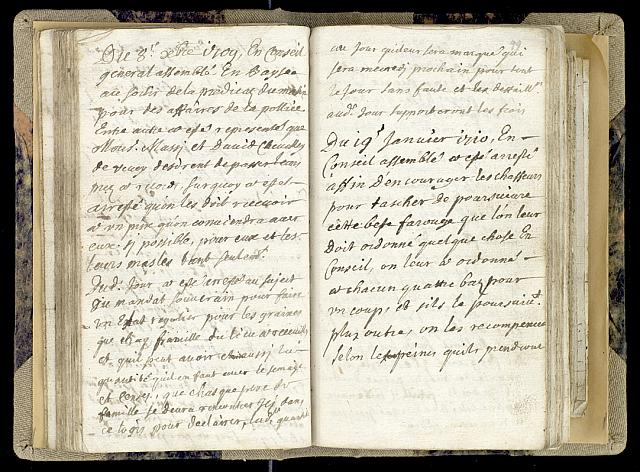 Du 8.e xbre 1709, En Conseil
general assemblé En Baysea
au sortir de la predication du matin
pour des affaires de la pollice
Entre autre a esté representé que
Mons.r Massÿ et David Chevalley
de vevey desirent de passer
a esté
arresté quon les doit recevoir
a un prix quon conviendra avec
eux, si possible, pour eux et les
leurs masles tant seulem.t
Dud. Jour a esté arresté au sujeit
du mandat souverain pour faire
un Estat regulier pour les graines
que chaq famille du lieu a recueilli
et quil peut avoir
quantité quil en faut avec le semage
et que chasque pere de
famille se devra rencontrer Jcÿ dans
ce logis pour declairer, la
au Jour qui leur sera marqué qui
sera mecredj prochain pour tout
le Jour sans faute et les
aud. Jour supporteront les frais
Du 19.e Janvier 1710, En
Conseil assemblé a esté arresté
affin D'encourager les chasseurs
pour tascher de poursuivre
cette beste farouge que l'on leur
Doit ordonné quelque chose En
Conseil, on leur a ordonné
a chacun quattre baz pour
un coup, et sils la poursuive.t
plus outre, on les recompensera
selon les peines quils prendront